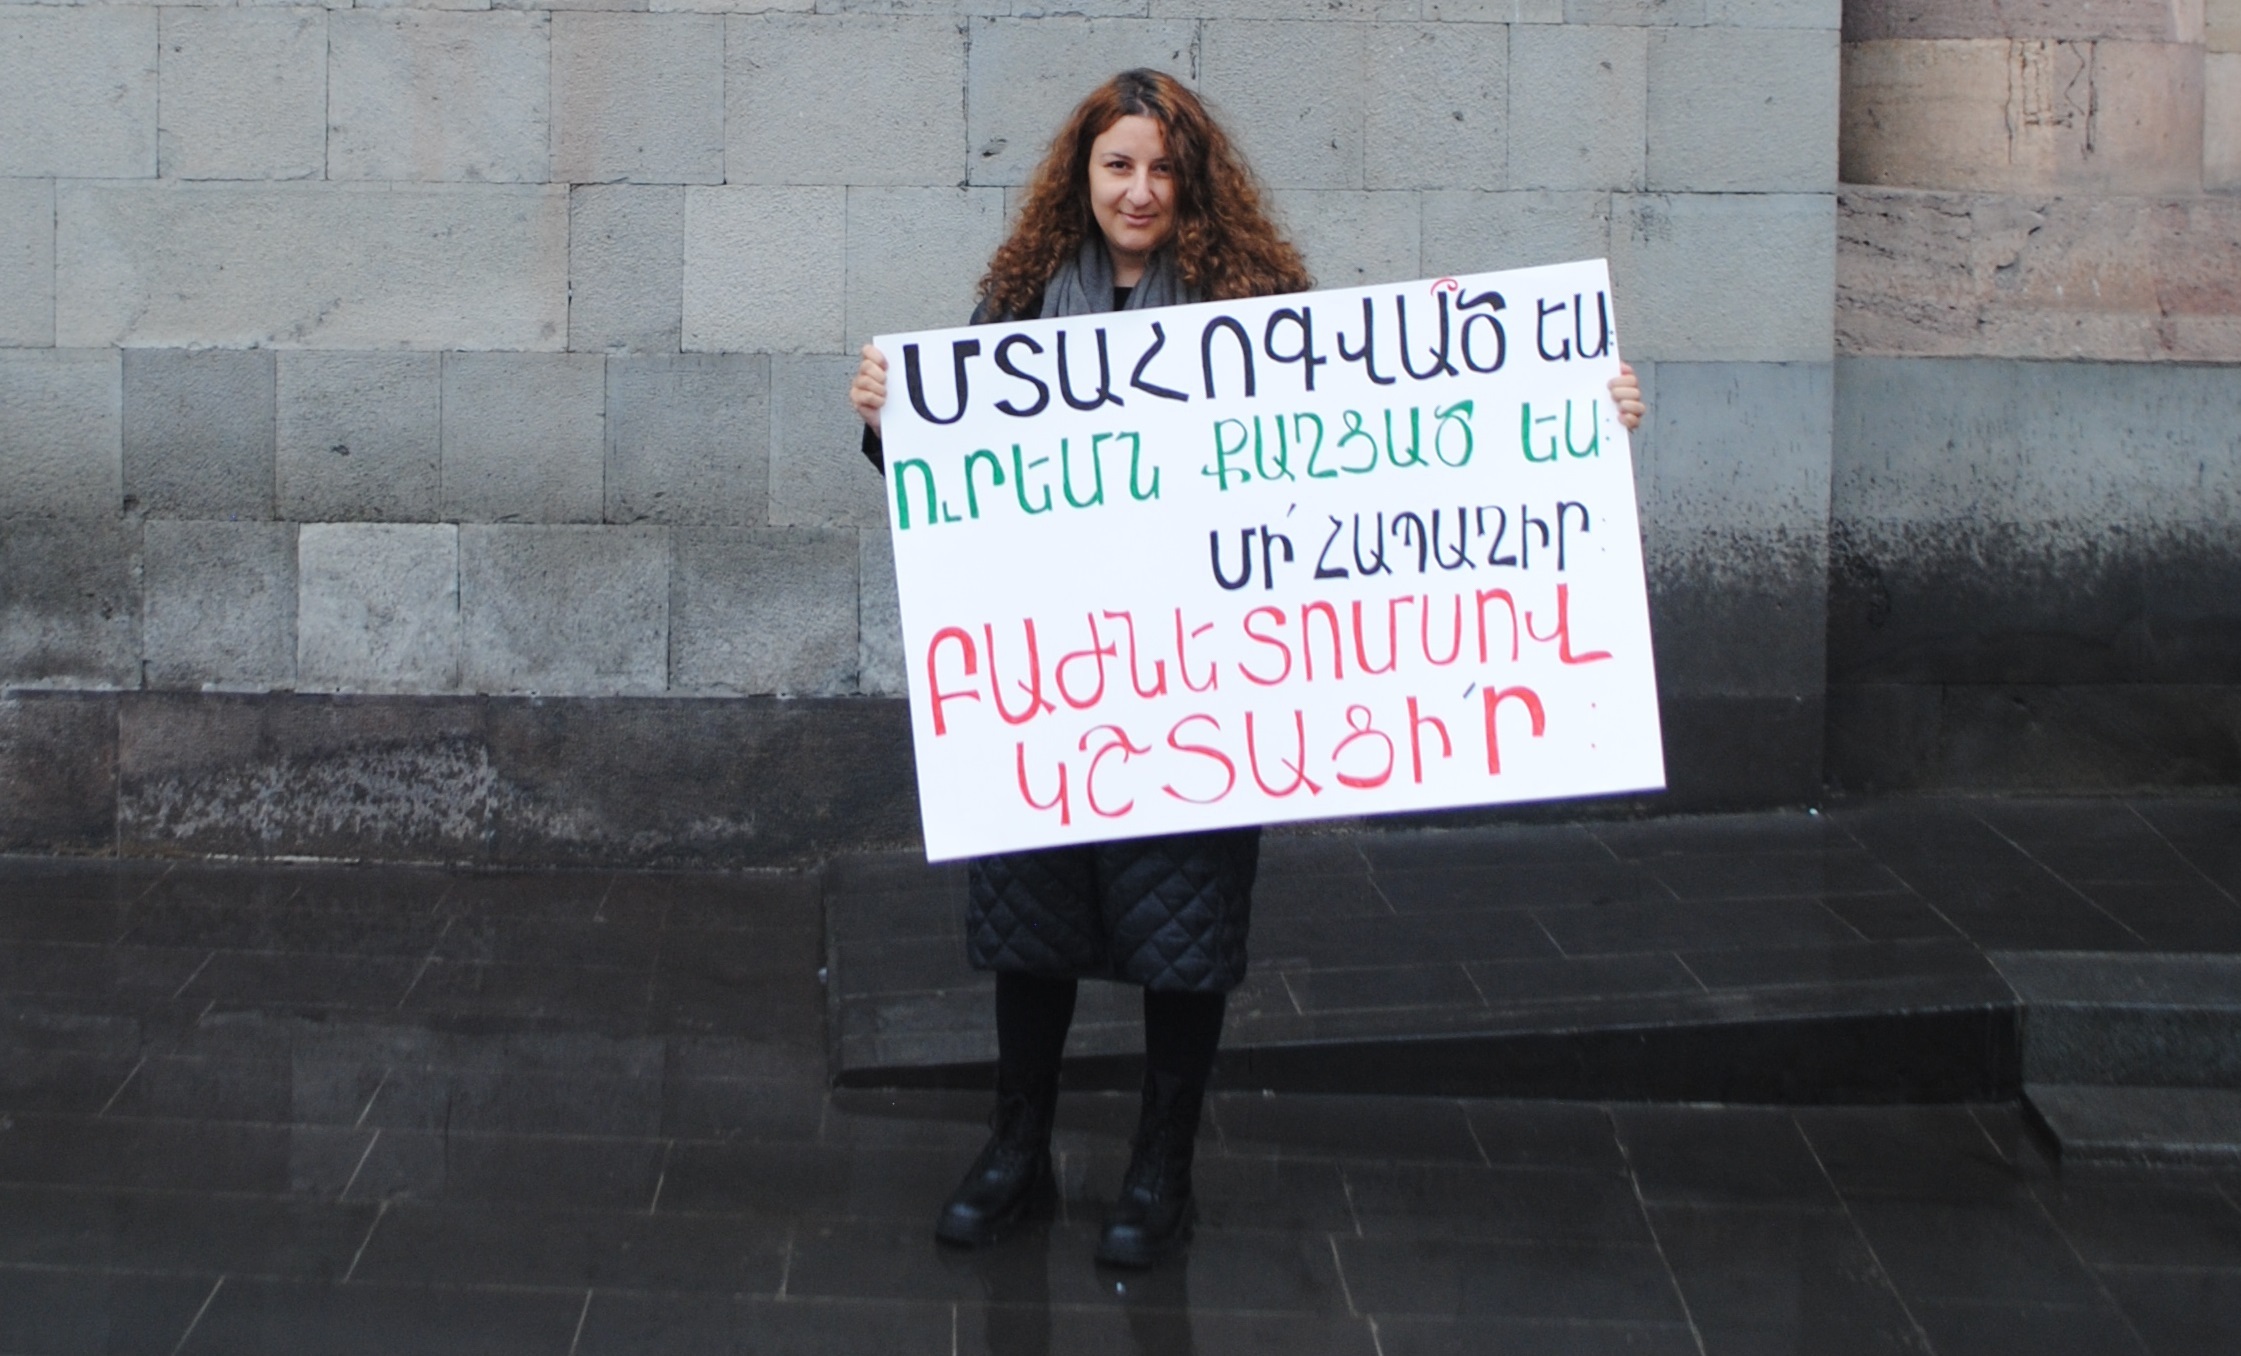 ՄՏԱՀՈԳՎԱ՞Ծ ԵՍ:
ՈՒՐԵՄՆ ՔԱՂՑԱԾ ԵՍ:
ՄԻ՛ ՀԱՊԱՂԻՐ:
ԲԱԺՆԵՏՈՄՍՈՎ
ԿՇՏԱՑԻ՛Ր: